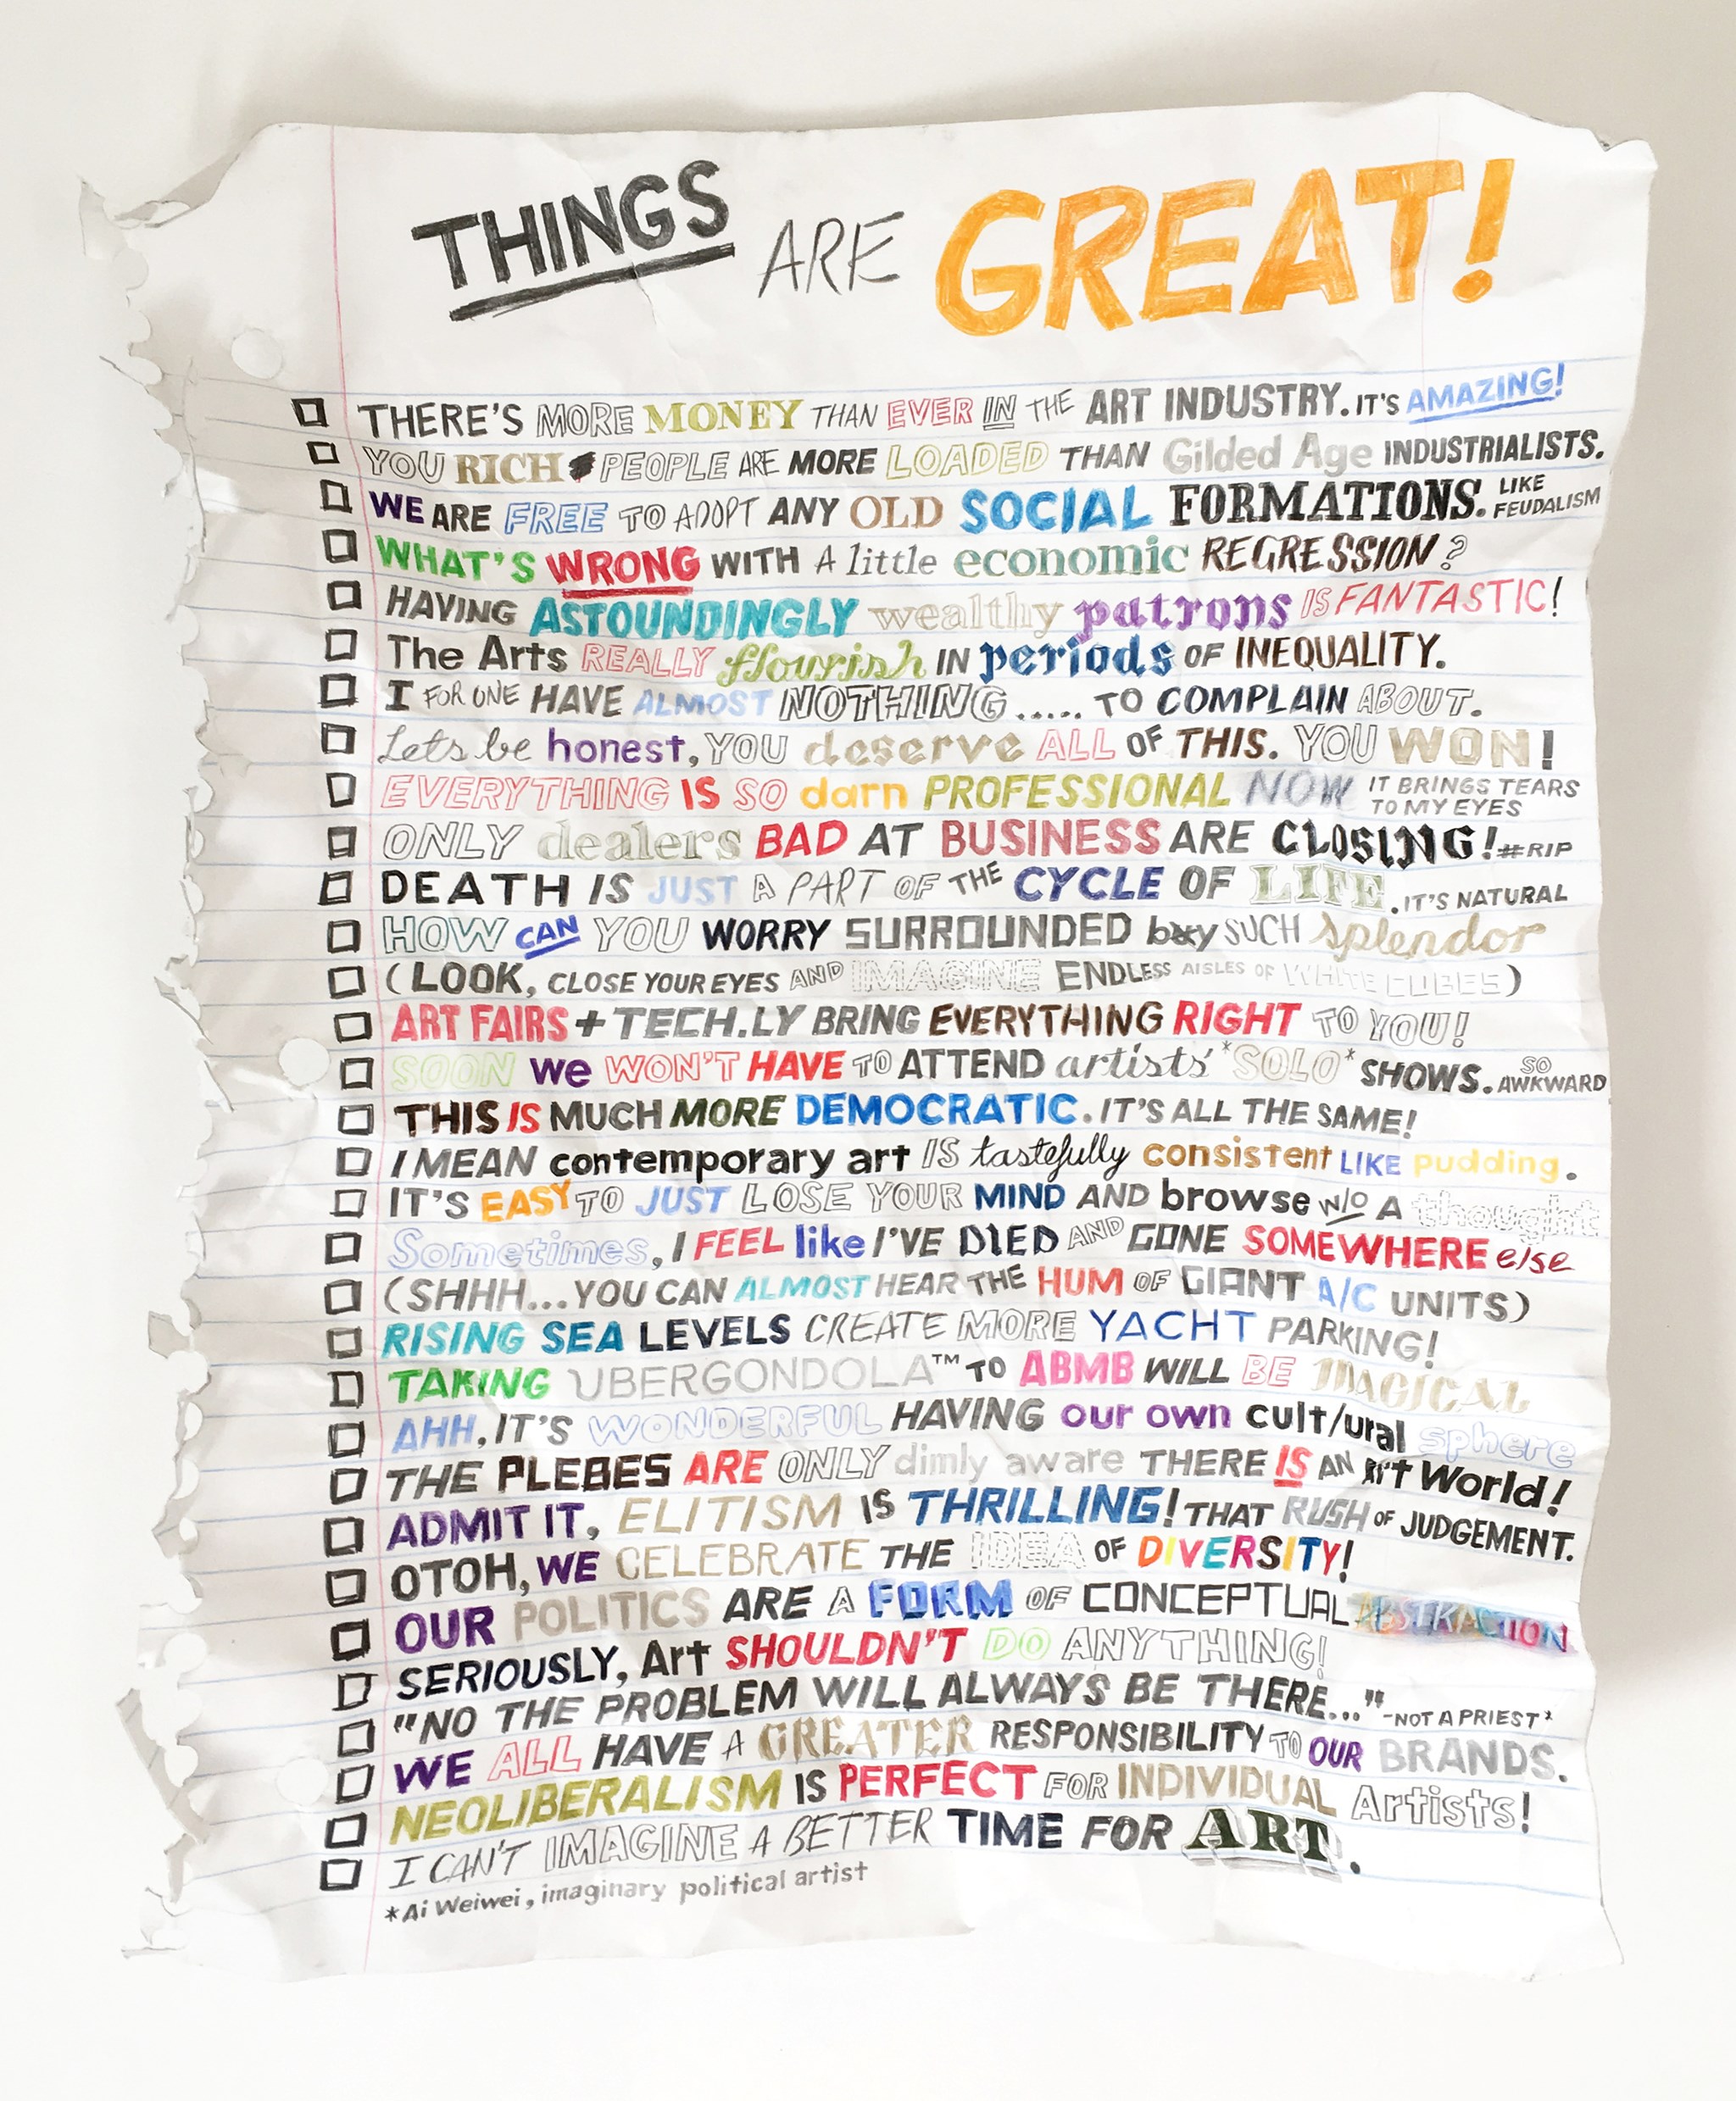 THINGS ARE GREAT!
THERE'S MORE MONEY THAN EVER IN THE ART INDUSTRY. IT'S AMAZING!
YOU RICH PEOPLE ARE MORE LOADED THAN Gilded Age INDUSTRIALISTS.
WE ARE FREE TO ADOPT ANY OLD SOCIAL FORMATIONS. LIKE FEUDALISM
WHAT'S WRONG WITH A little economic REGRESSION?
HAVING ASTOUNDINGLY wealthy patrons IS FANTASTIC!
The Arts REALLY flourish IN periods OF INEQUALITY.
I FOR ONE HAVE ALMOST NOTHING..... TO COMPLAIN ABOUT.
Lets be honest, YOU deserve ALL OF THIS. YOU WON!
EVERYTHING IS SO darn PROFESSIONAL NOW IT BRINGS TEARS TO MY EYES
ONLY dealers BAD AT BUSINESS ARE CLOSING! #RIP
DEATH IS JUST A PART OF THE CYCLE OF LIFE. IT'S NATURAL
HOW CAN YOU WORRY SURROUNDED by SUCH splendor
(LOOK, CLOSE YOUR EYES AND IMAGINE ENDLESS AISLES OF WHITE CUBES)
ART FAIRS + TECH.LY BRING EVERYTHING RIGHT TO YOU!
SOON we WON'T HAVE TO ATTEND artists' *SOLO* SHOWS. SO AWKWARD
THIS IS MUCH MORE DEMOCRATIC. IT'S ALL THE SAME!
I MEAN contemporary art IS tastefully consistent LIKE pudding.
IT'S EASY TO JUST LOSE YOUR MIND AND browse W/O A thought
Sometimes, I FEEL like I'VE DIED AND GONE SOMEWHERE else
(SHHH...YOU CAN ALMOST HEAR THE HUM OF GIANT A/C UNITS)
RISING SEA LEVELS CREATE MORE YACHT PARKING!
TAKING UBERGONDOLA™ TO ABMB WILL BE MAGICAL
AHH, IT'S WONDERFUL HAVING our own cult/ural sphere
THE PLEBES ARE ONLY dimly aware THERE IS AN Art World!
ADMIT IT, ELITISM IS THRILLING! THAT RUSH OF JUDGEMENT.
OTOH, WE CELEBRATE THE IDEA OF DIVERSITY!
OUR POLITICS ARE A FORM OF CONCEPTUAL ABSTRACTION
SERIOUSLY, Art SHOULDN'T DO ANYTHING!
"NO THE PROBLEM WILL ALWAYS BE THERE..." -NOT A PRIEST*
WE ALL HAVE A GREATER RESPONSIBILITY TO OUR BRANDS.
NEOLIBERALISM IS PERFECT FOR INDIVIDUAL Artists!
I CAN'T IMAGINE A BETTER TIME FOR ART.
*Ai Weiwei, imaginary political artist